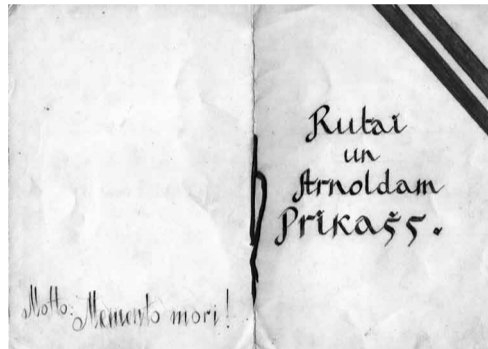 Motto: Memento mori!
Rutai
un
Arnoldam
Prikašs.